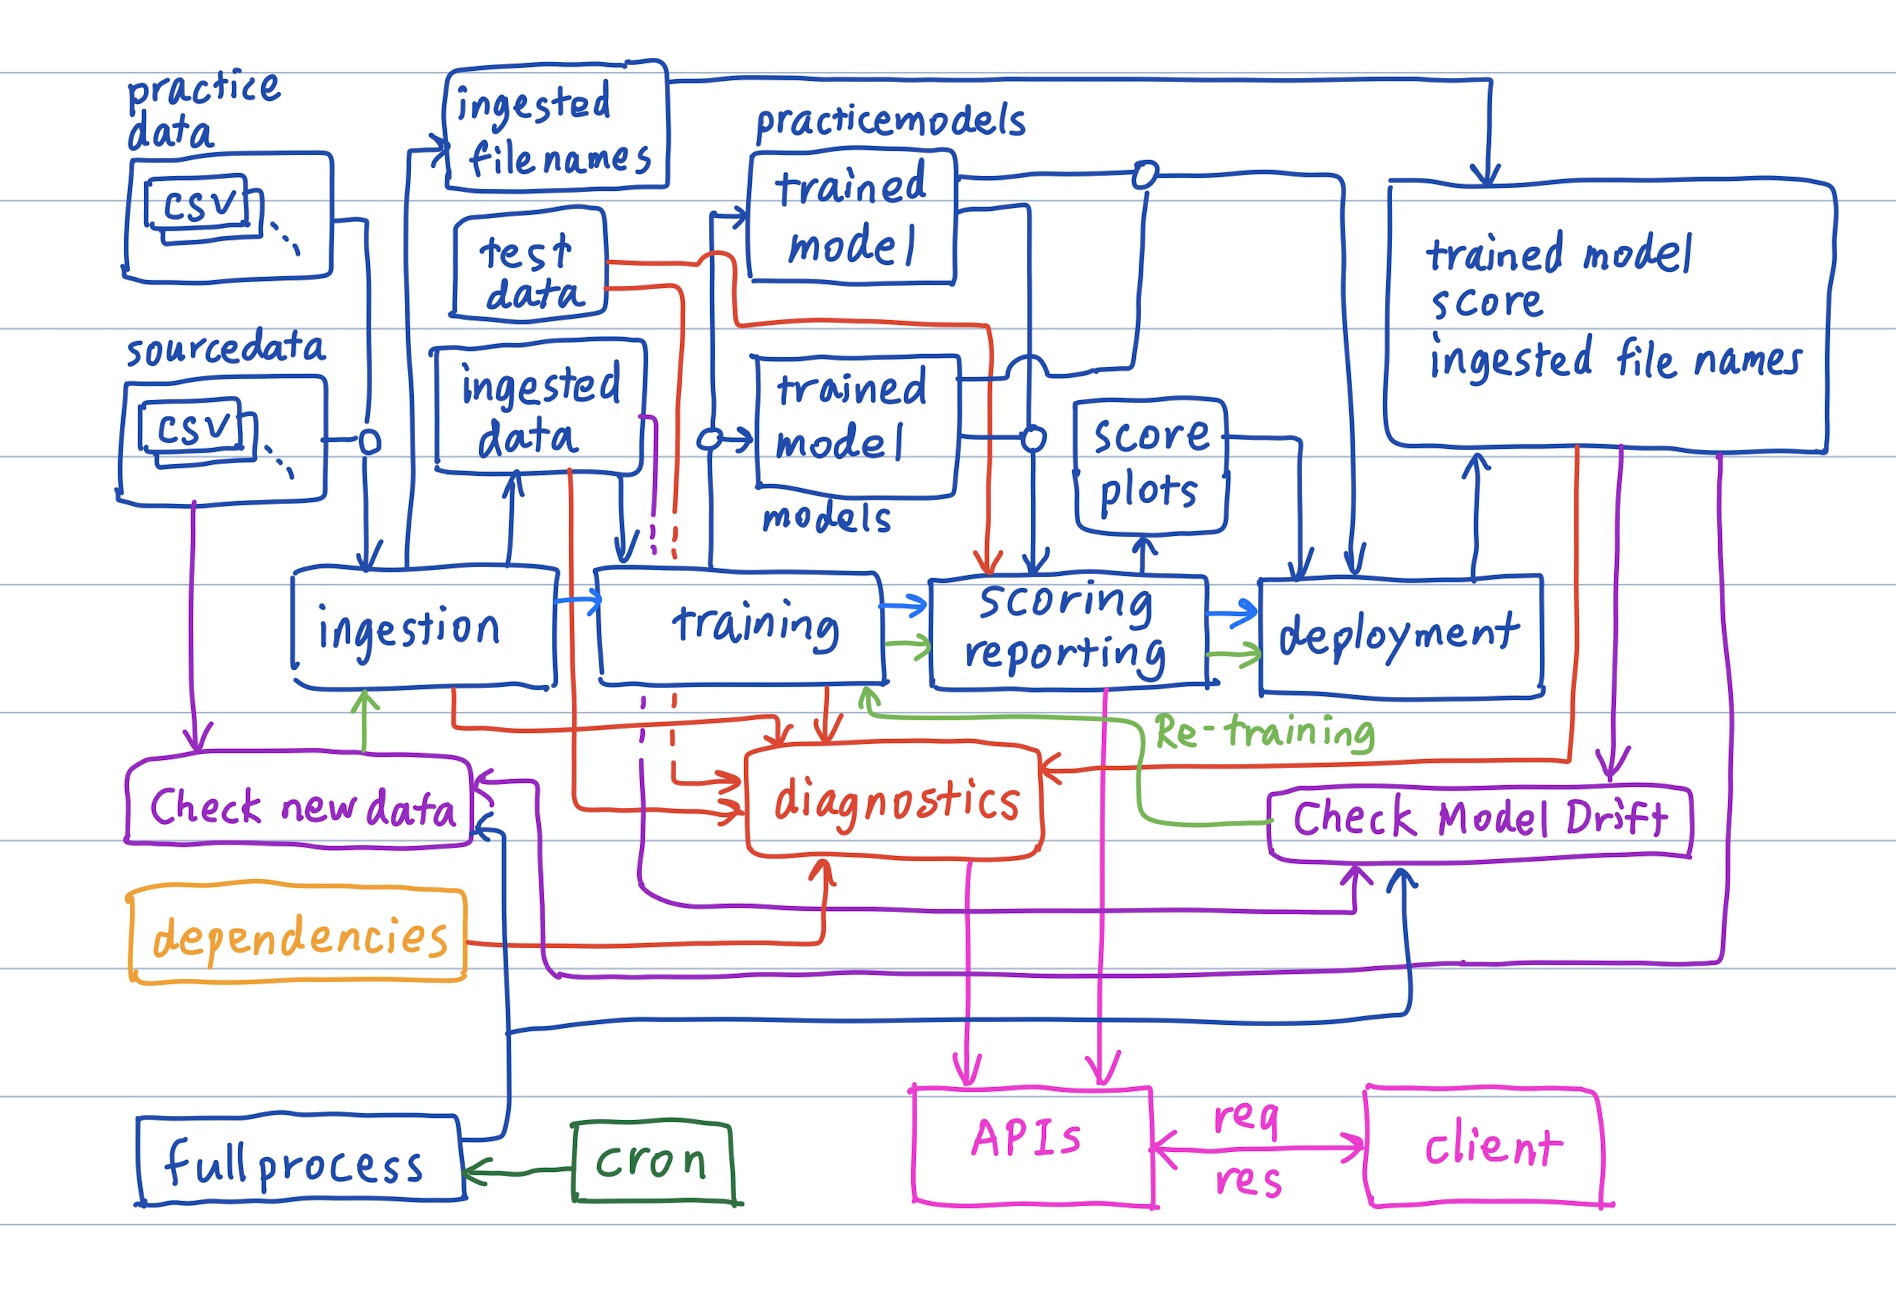 practice
data
csv
sourcedata
csv
ingested
file names
test
data
ingested
data
practicemodels
trained
model
trained
model
models
score
plots
trained model
score
ingested file names
ingestion
training
scoring
reporting
deployment
Re-training
Check new data
diagnostics
Check Model Drift
dependencies
full process
cron
APIs
req
res
client